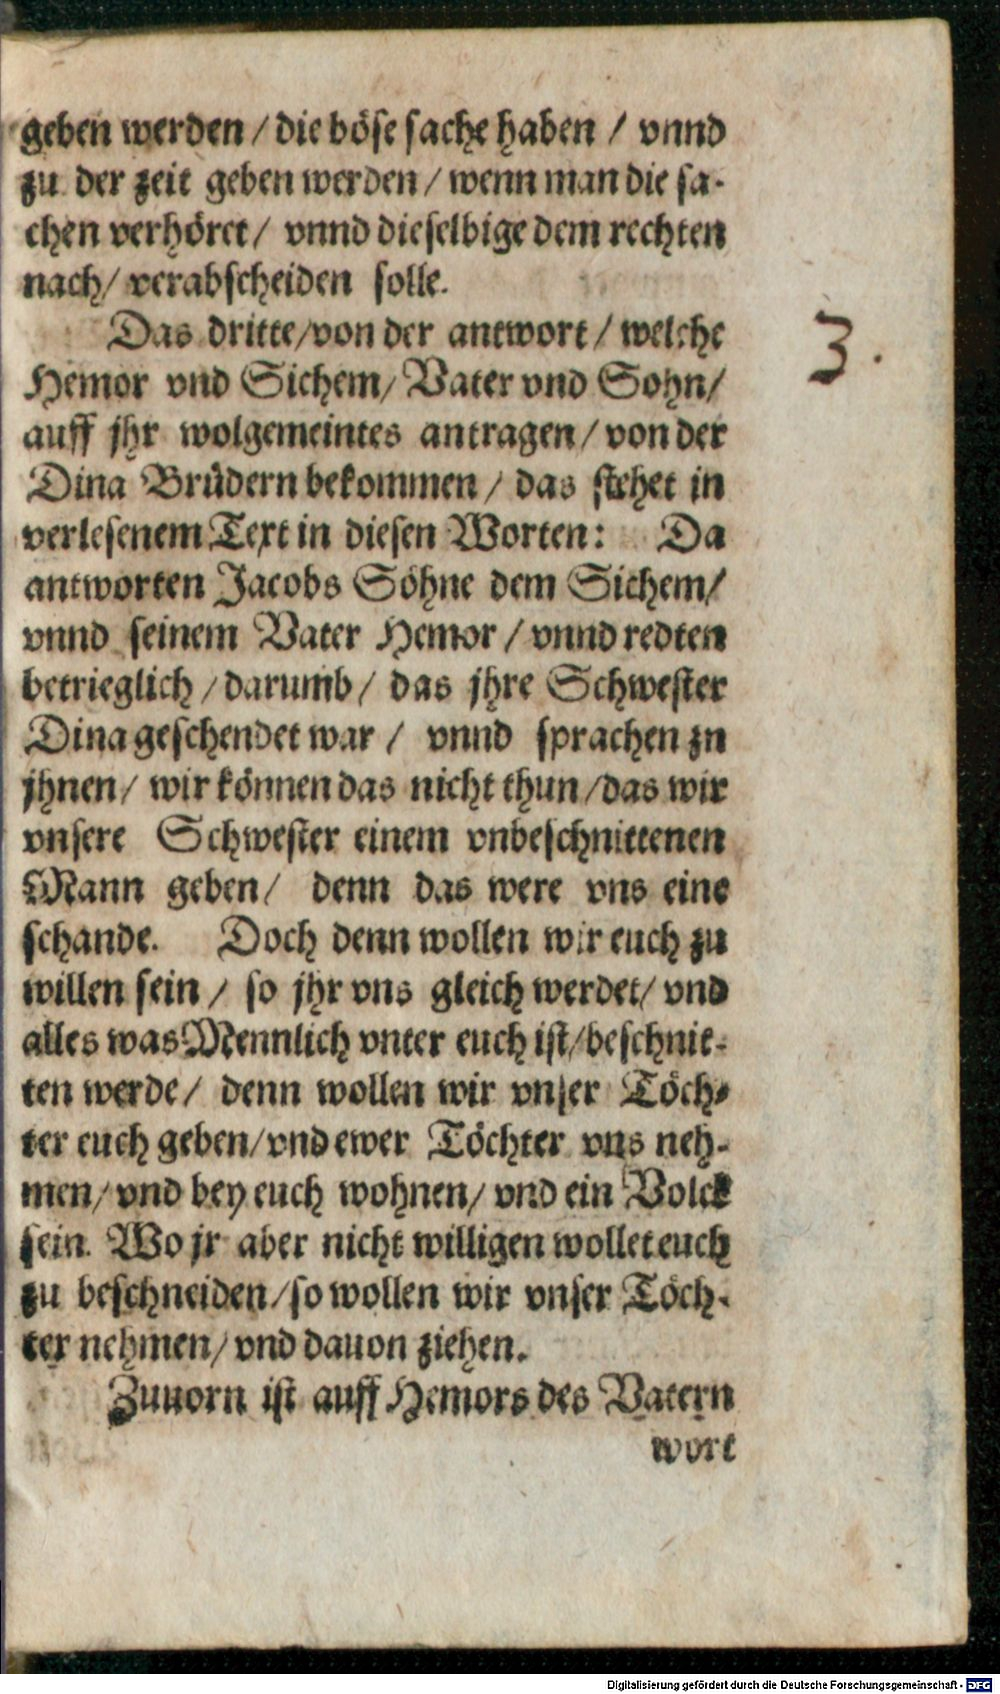 geben werden / die böse sache haben / vnnd
zu der zeit geben werden / wenn man die sa-
chen verhöret / vnnd dieselbige dem rechten
nach / verabscheiden solle.
Das dritte / von der antwort / welche
3.
Hemor vnd Sichem / Vater vnd Sohn /
auff jhr wolgemeintes antragen / von der
Dina Brüdern bekommen / das stehet in
verlesenem Text in diesen Worten: Da
antworten Jacobs Söhne dem Sichem /
vnnd seinem Vater Hemor / vnnd redten
betrieglich / darumb / das jhre Schwester
Dina geschendet war / vnnd sprachen zu
jhnen / wir können das nicht thun / das wir
vnsere Schwester einem vnbeschnittenen
Mann geben / denn das were vns eine
schande. Doch denn wollen wir euch zu
willen sein / so jhr vns gleich werdet / vnd
alles was Mennlich vnter euch ist / beschnit-
ten werde / denn wollen wir vnser Töch-
ter euch geben / vnd ewer Töchter vns neh-
men / vnd bey euch wohnen / vnd ein Volck
sein. Wo jr aber nicht willigen wollet euch
zu beschneiden / so wollen wir vnser Töch-
ter nehmen / vnd dauon ziehen.
Zuuorn ist auff Hemors des Vatern
wort
Digitalisierung gefördert durch die Deutsche Forschungsgemeinschaft - DFG